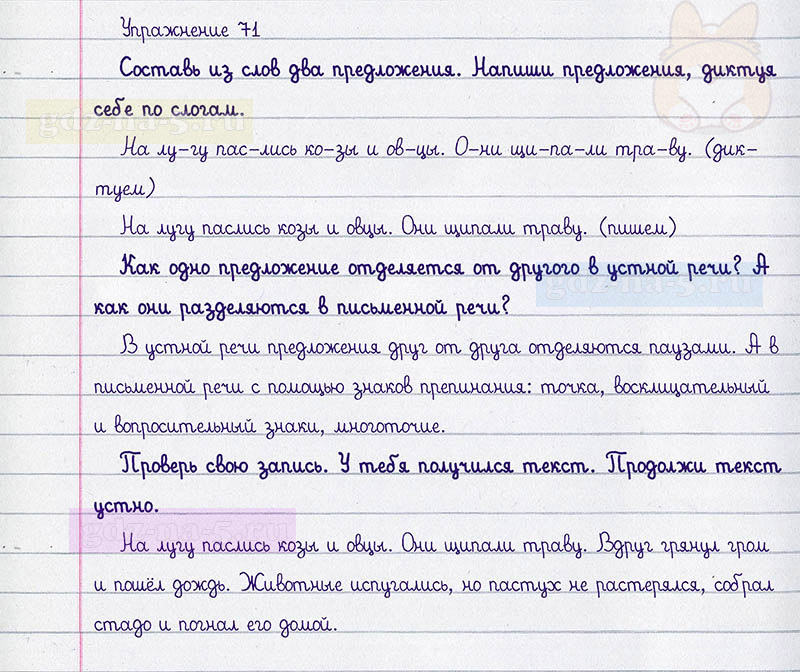 Упражнение 71
Составь из слов два предложения. Напиши предложения, диктуя
себе по слогам.
gdz-na-5.ru
На лу-гу пас-лись ко-зы и ов-цы. О-ни щи-па-ли тра-ву. (дик-
туем)
На лугу паслись козы и овцы. Они щипали траву. (пишем)
Как одно предложение отделяется от другого в устной речи? А
gdz-na-5.ru
как они разделяются в письменной речи?
В устной речи предложения друг от друга отделяются паузами. А в
письменной речи с помощью знаков препинания: точка, восклицательный
и вопросительный знаки, многоточие.
Проверь свою запись. У тебя получился текст. Продолжи текст
устно.
gdz-na-5.ru
На лугу паслись козы и овцы. Они щипали траву. Вдруг грянул гром
и пошёл дождь. Животные испугались, но пастух не растерялся, собрал
стадо и погнал его домой.